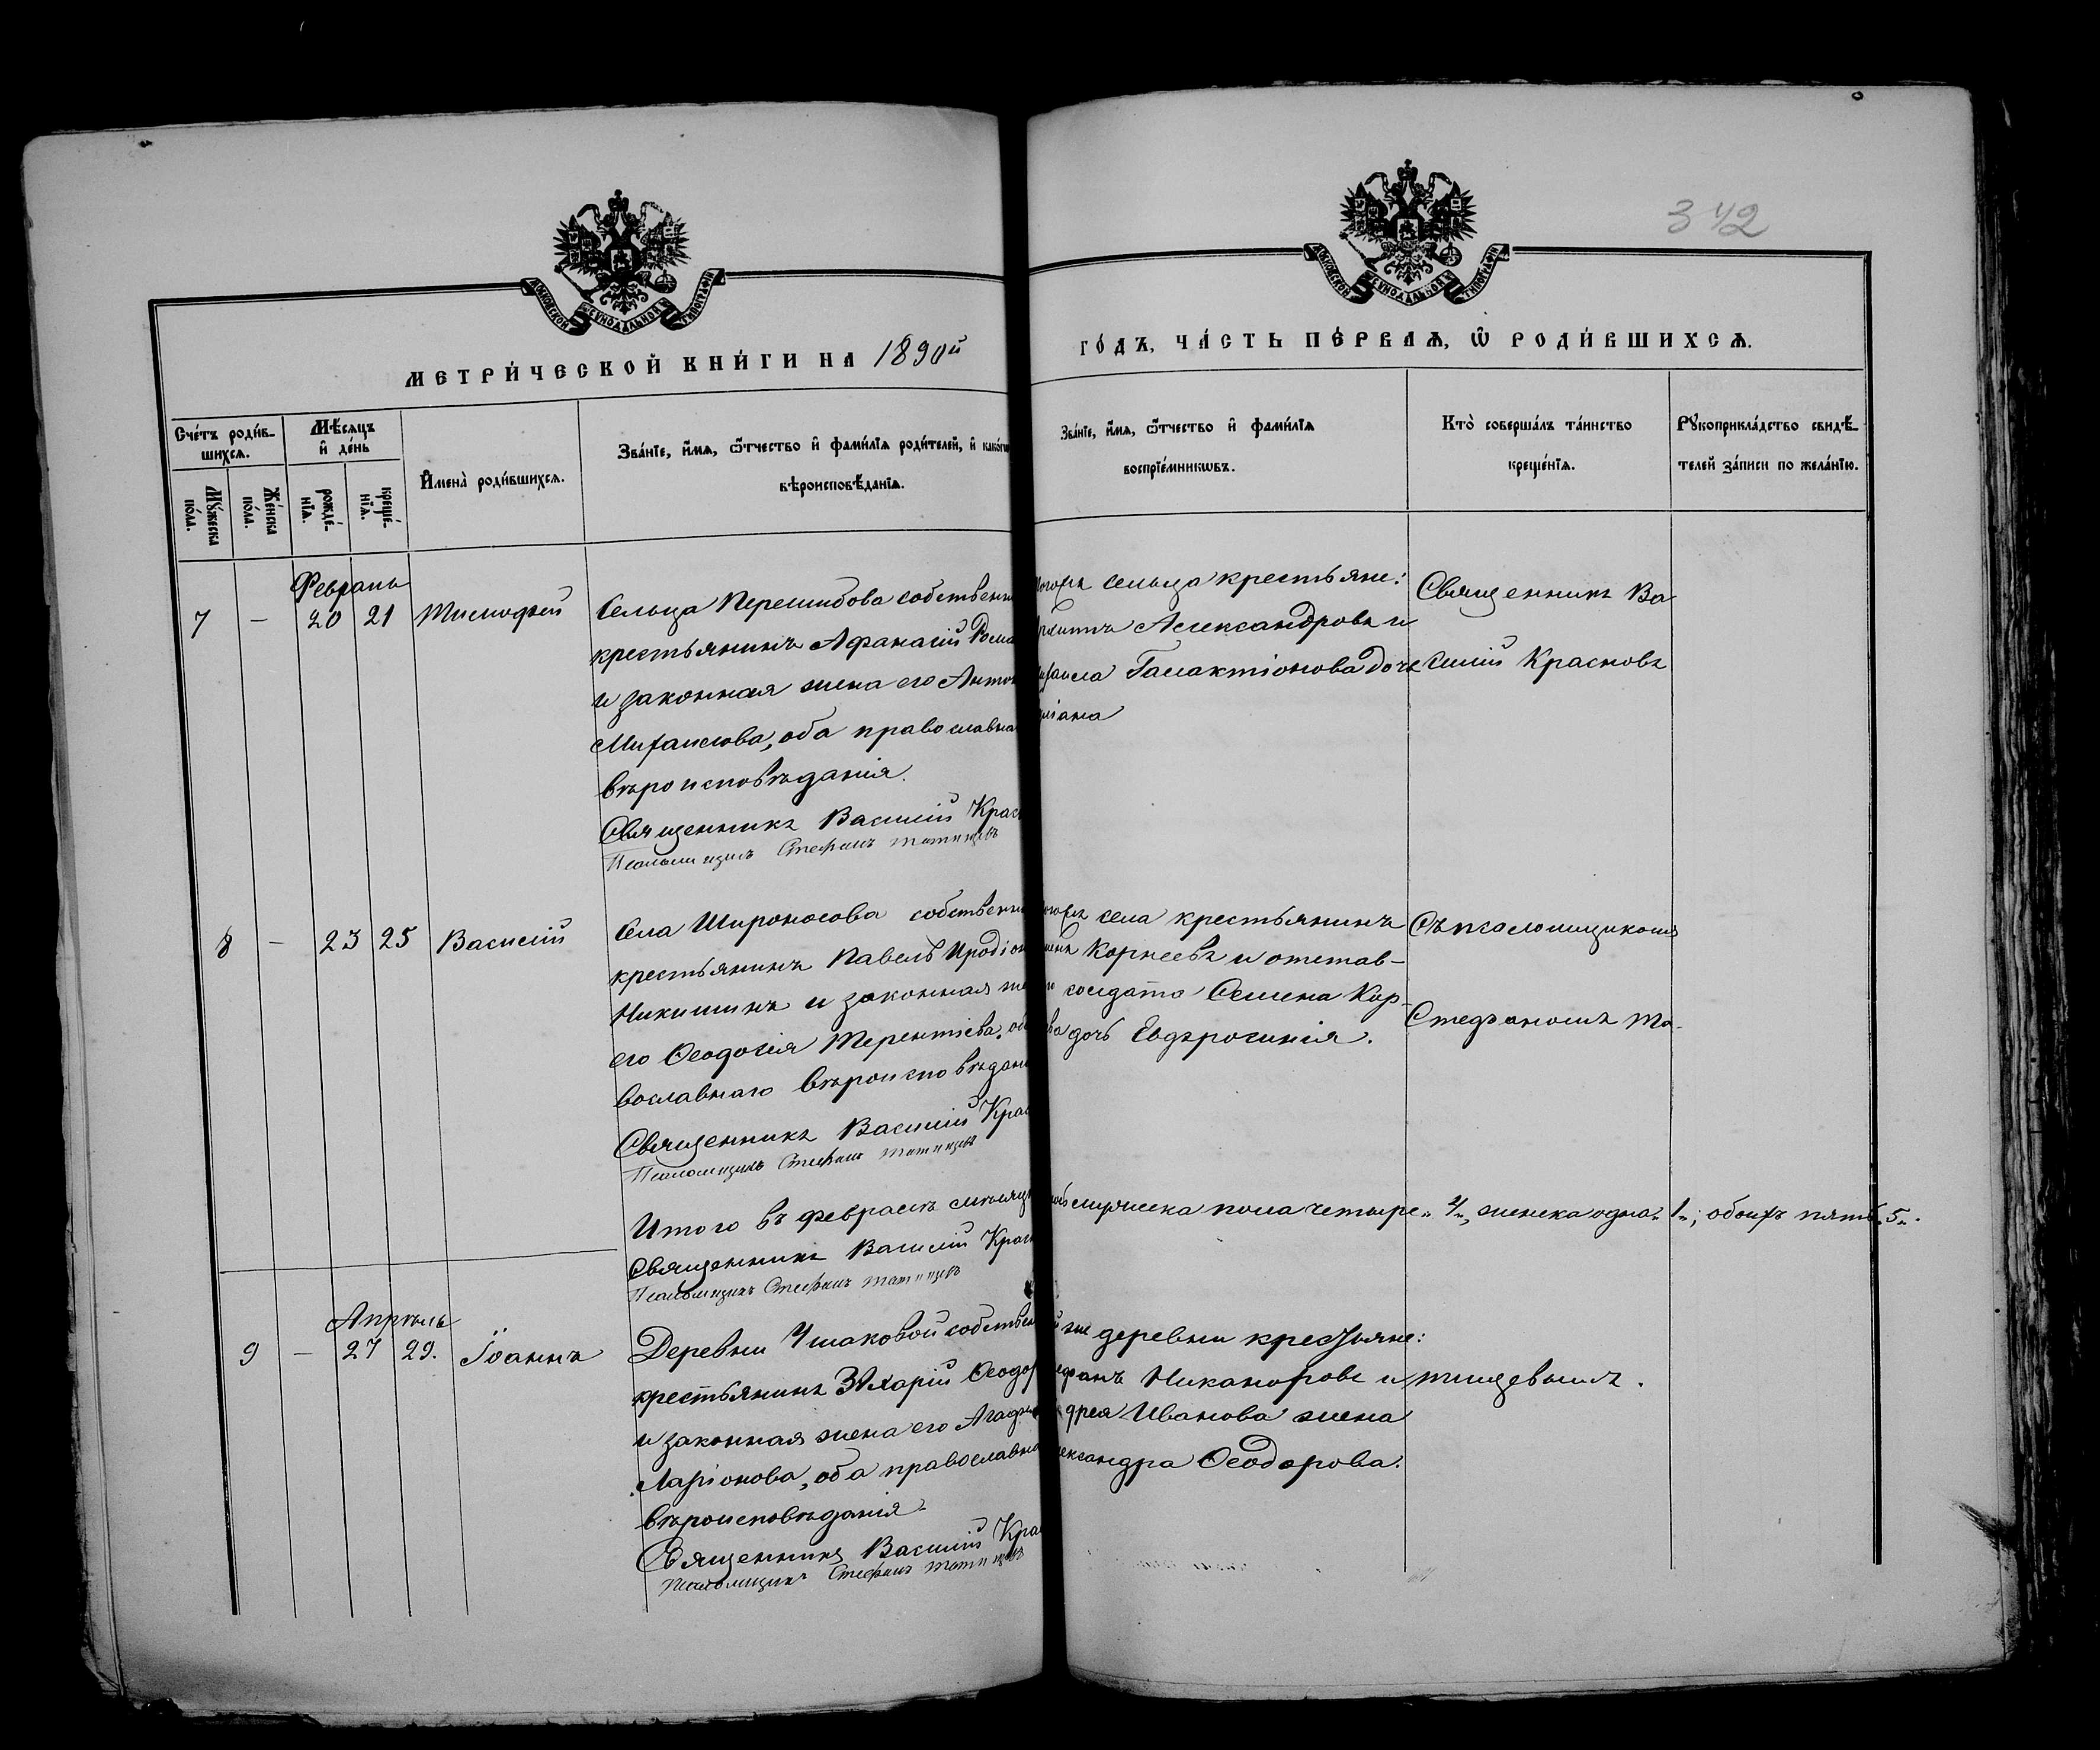 342
МОСКОВСКОЙ СѴНОДАЛЬНОЙ ТИПОГРАФІИ
МОСКОВСКОЙ СѴНОДАЛЬНОЙ ТИПОГРАФІИ
МЕТРИ́ЧЕСКОЙ КНИ́ГИ НА 1890й
ГО́ДЪ, ЧА́СТЬ ПЕ́РВАѦ, Ѡ҆ РОДИ́ВШИХСѦ.
Сче́тъ роди́в-
шихсѧ.
Мѣ́сѧцъ
и҆ де́нь
Му́жеска
по́ла.
Же́нска
по́ла.
рожде́-
нїѧ.
креще́-
нїѧ.
И҆мена̀ роди́вшихсѧ.
Зва́нїе, и҆́мѧ, ѻ҆́тчество и҆ фами́лїѧ роди́телей, и҆ како́гѡ
вѣроисповѣ́данїѧ.
Зва́нїе, и҆́мѧ, ѻ҆́тчество и҆ фами́лїѧ
воспрїе́мникѡвъ.
Кто̀ соверша́лъ та́инство
креще́нїѧ.
Рꙋкоприкла́дство свидѣ́-
телей за́писи по жела́нїю.
Февраль
7 — 20 21 Тимофей
Сельца Перешибова собственн
крестьянинъ Афанасій Рома
и законная жена его Антон
Михаилова, оба православна
вѣроисповѣданія.
Священникъ Василій Крас
Псаломщикъ Стефанъ Татищевъ
сельца крестьяне:
Александровъ и
Галактіонова дочь
Священникъ Ва
силій Красновъ
8 — 23 25 Василій
Села Широносова собственн
крестьянинъ Павелъ Иродіон
Никишинъ и законная же
его Ѳеодосія Терентіева, об
вославнаго вѣроисповѣдан
Священникъ Василій Крас
Псаломщикъ Стефанъ Татищевъ
села крестьянинъ
Корнеевъ и отстав-
солдата Семена Кор-
ва дочь Евфросинія.
Съ псаломщикомъ
Стефаномъ Та-
Итого въ февралѣ мѣсяцѣ
мужеска пола четыре „4„, женска одна „1„; обоихъ пять „5„.
Священникъ Василій Крас
Псаломщикъ Стефанъ Татищевъ
Апрѣль
9 — 27 29. Іоаннъ
Деревни Ушаковой собствен
крестьянинъ Захарій Ѳеодор
и законная жена его Агаф
Ларіонова, оба православна
вѣроисповѣданія
Священникъ Василій Крас
Псаломщикъ Стефанъ Татищевъ
же деревни крестьяне:
ефанъ Никаноровъ и
дрея Иванова жена
лександра Ѳеодорова.
тищевымъ.